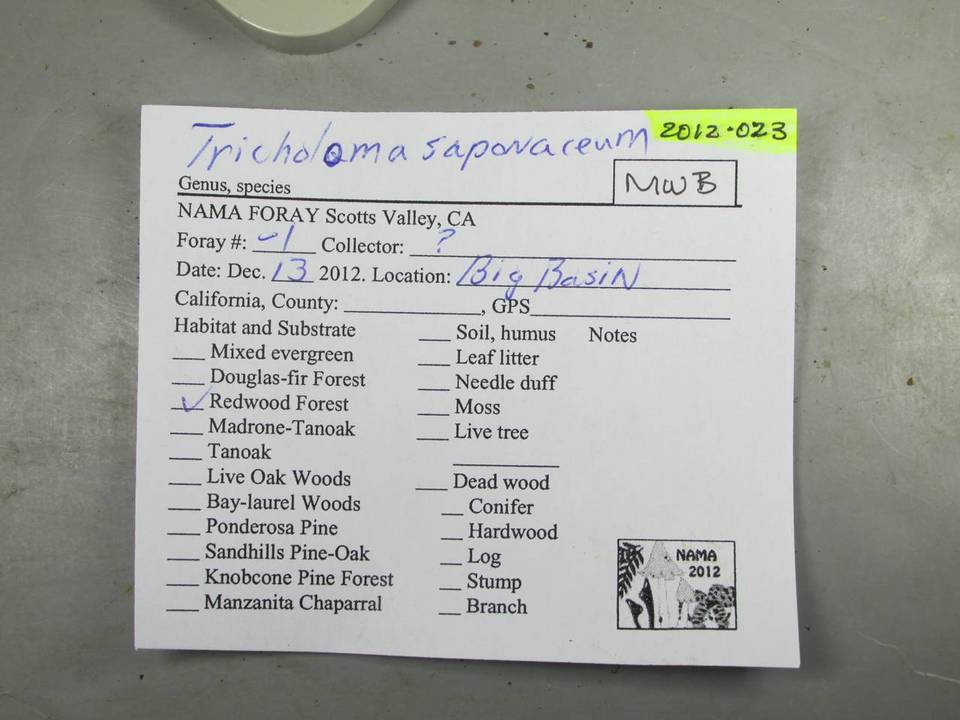 Tricholoma saponaceum 2012-023
Genus, species MWB
NAMA FORAY Scotts Valley, CA
Foray #: -1 Collector: ?
Date: Dec. 13 2012. Location: Big Basin
California, County: ____________, GPS____________
Habitat and Substrate ___ Soil, humus Notes
___ Mixed evergreen ___ Leaf litter
___ Douglas-fir Forest ___ Needle duff
✓ Redwood Forest ___ Moss
___ Madrone-Tanoak ___ Live tree
___ Tanoak
___ Live Oak Woods ___ Dead wood
___ Bay-laurel Woods __ Conifer
___ Ponderosa Pine __ Hardwood
___ Sandhills Pine-Oak __ Log
___ Knobcone Pine Forest __ Stump
___ Manzanita Chaparral __ Branch
NAMA
2012